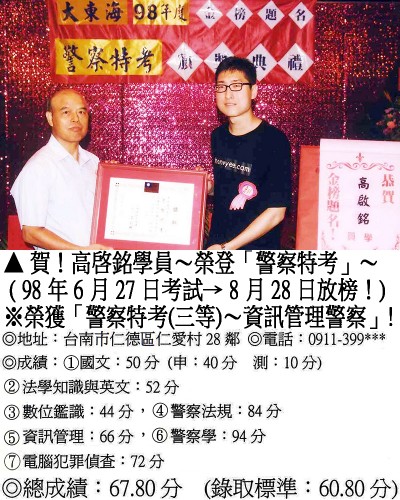 大東海 98年度 金榜題名
警察特考 頒獎典禮
恭賀
高啟銘
同學
金榜題名!
▲賀！高啓銘學員～榮登「警察特考」～
（98 年 6 月 27 日考試→ 8 月 28 日放榜！）
※榮獲「警察特考(三等)～資訊管理警察」!
◎地址：台南市仁德區仁愛村 28 鄰 ◎電話：0911-399***
◎成績：①國文：50 分 (申：40 分 測：10 分)
②法學知識與英文：52 分
③數位鑑識：44 分，④警察法規：84 分
⑤資訊管理：66 分，⑥警察學：94 分
⑦電腦犯罪偵查：72 分
◎總成績：67.80 分 (錄取標準：60.80 分)